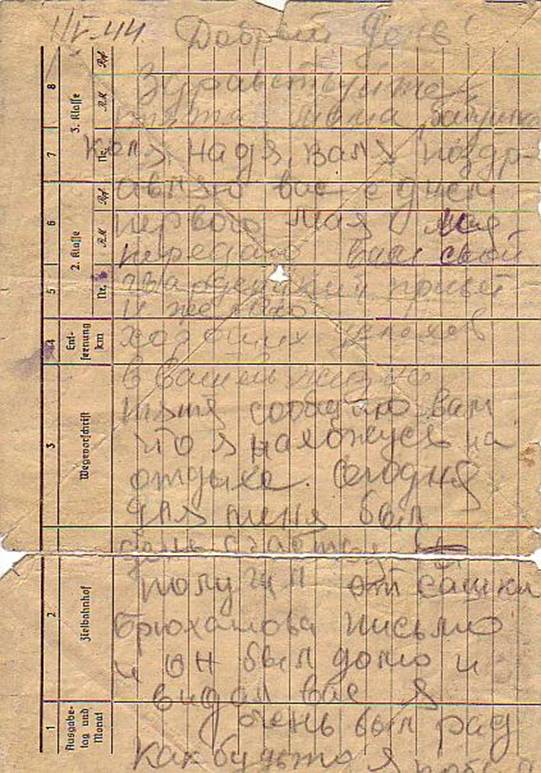 1/V-44. Добрый день!
Здравствуйте
тятя мама бабушка
Коля, Надя, Валя поздр-
авляю вас с днем
первого мая
передаю вам свой
гвардейский привет
и желаю
хороших успехов
в вашей жизни
тятя сообщаю вам
что я нахожусь на
отдыхе. Сегодня
для меня был
день
получил от Сашки
Брюханова письмо
и он был дома и
видал вас я
очень был рад
как будто я
1
Ausgabe-
tag und
Monat
2
Zielbahnhof
3
Wegevorschrift
4
Ent-
fernung
km
5
6
2. Klasse
Nr.
RM
Rpf
7
8
3. Klasse
Nr.
RM
Rpf